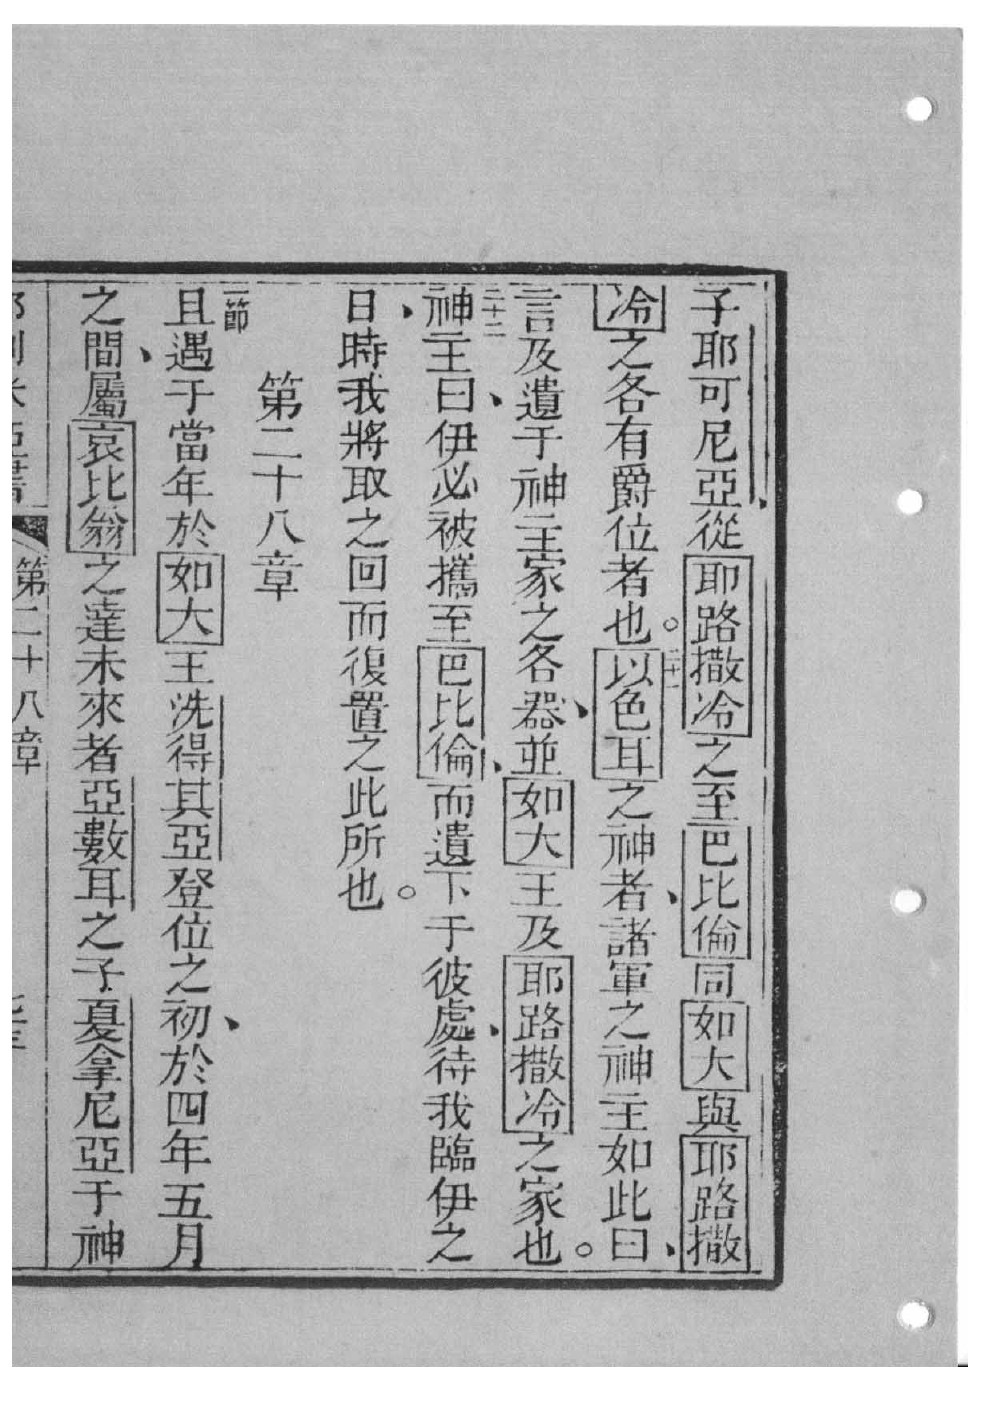 子耶可尼亞從耶路撒冷之至巴比倫同如大與耶路撒
冷之各有爵位者也。二十一以色耳之神者、諸軍之神主如此曰、
言及遺于神主家之各器、並如大王及耶路撒冷之家也。
二十二神主曰、伊必被攜至巴比倫、而遺下于彼處、待我臨伊之
日、時我將取之回而復置之此所也。
第二十八章
一節且遇于當年於如大王洗得其亞登位之初、於四年五月
之間、屬哀比翁之達未來者亞數耳之子夏拿尼亞于神
第二十八章